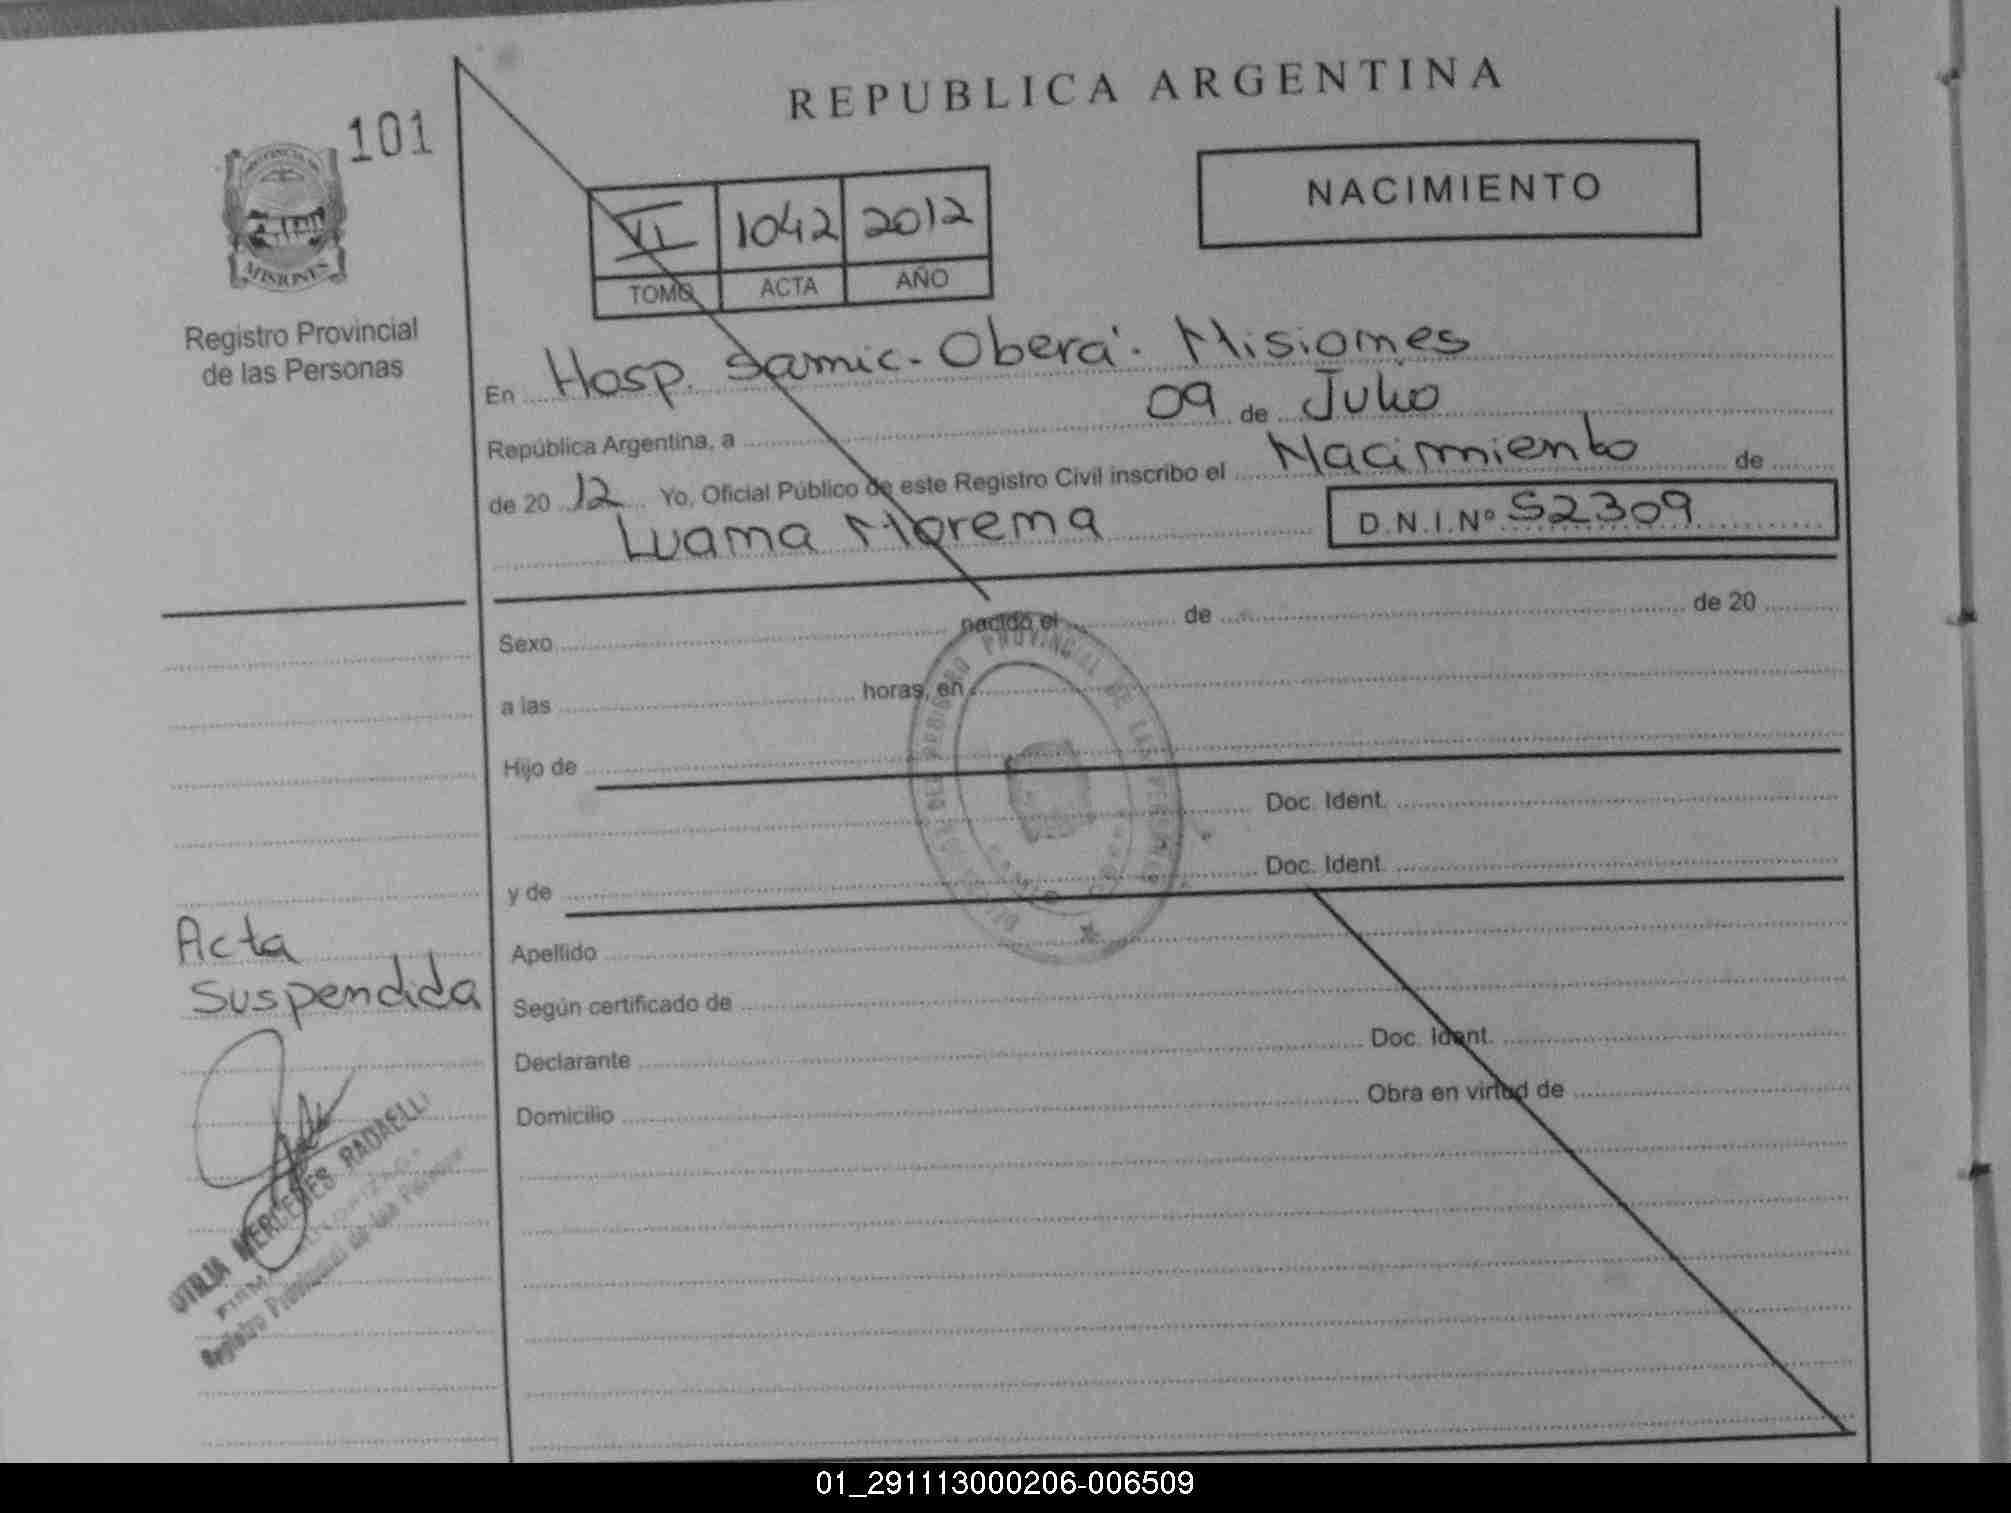 101
PROVINCIA DE
MISIONES
Registro Provincial
de las Personas
REPUBLICA ARGENTINA
NACIMIENTO
VI 1042 2012
TOMO ACTA AÑO
En Hosp. Samic - Oberá. Misiones
República Argentina, a 09 de Julio
de 2012 Yo, Oficial Público de este Registro Civil inscribo el Nacimiento de
Luana Morena D.N.I.Nº 52309
Sexo nacido el de de 20
a las horas, en
Hijo de
Doc. Ident.
y de Doc. Ident.
Apellido
Según certificado de
Declarante Doc. Ident.
Domicilio Obra en virtud de
PROVINCIAL DE LAS
Acta
Suspendida
OTILIA MERCEDES RADAELLI
Registro Provincial de las Personas
01_291113000206-006509